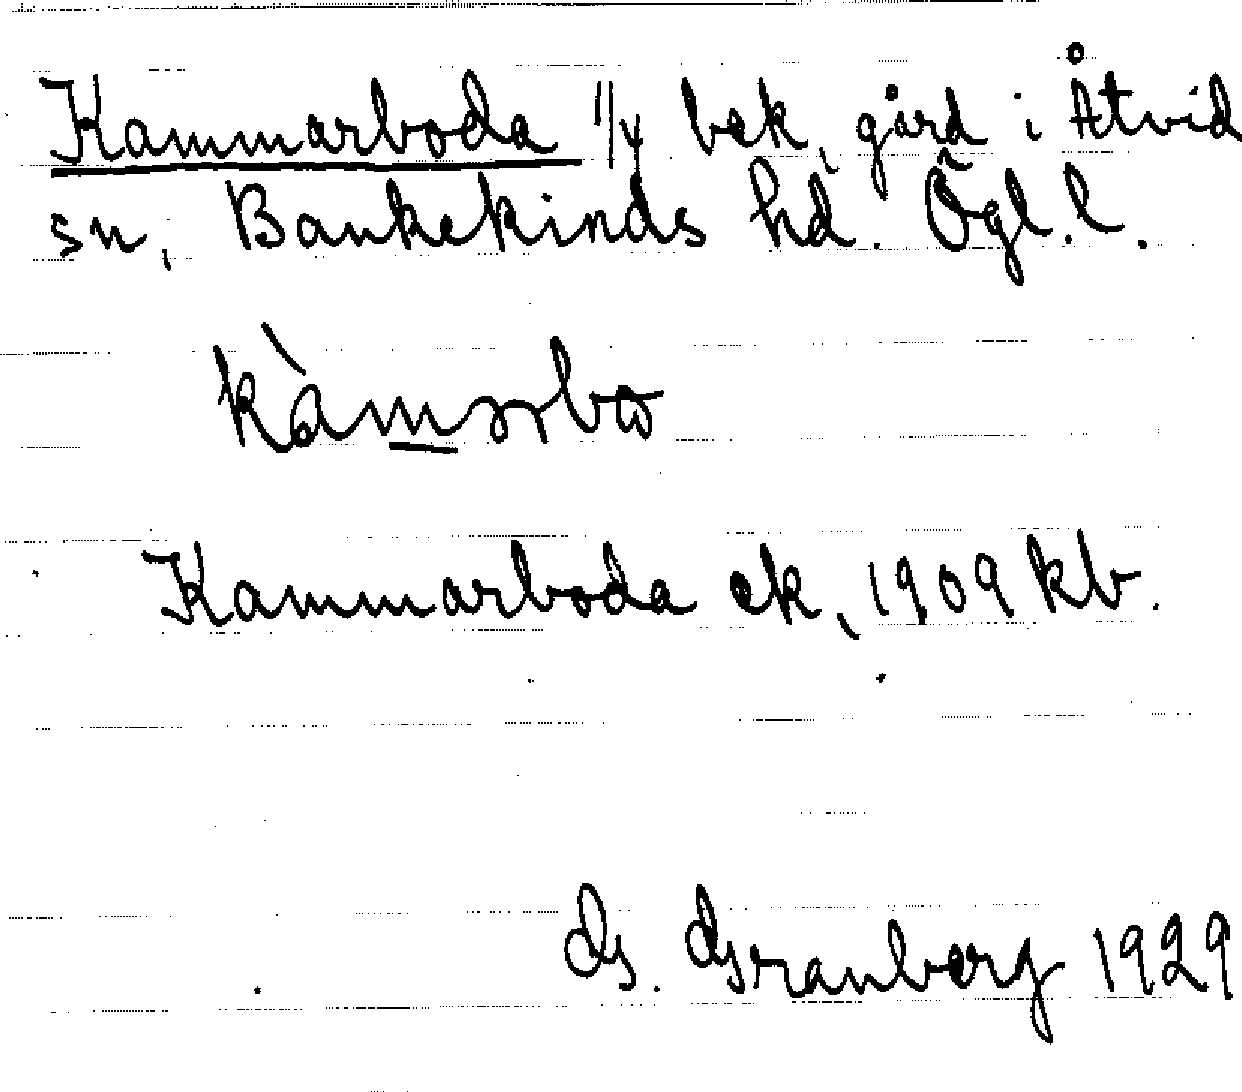 Kammarboda 1/4 bek. gård i Åtvid
sn, Bankekinds hd. Ögl. l.
Kammarboda ek, 1909 kb.
G. Granberg 1929